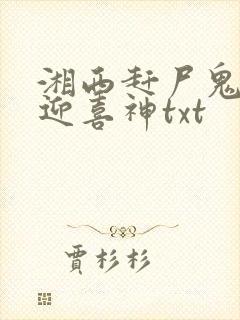 湘西赶尸鬼
迎喜神txt
贾杉杉